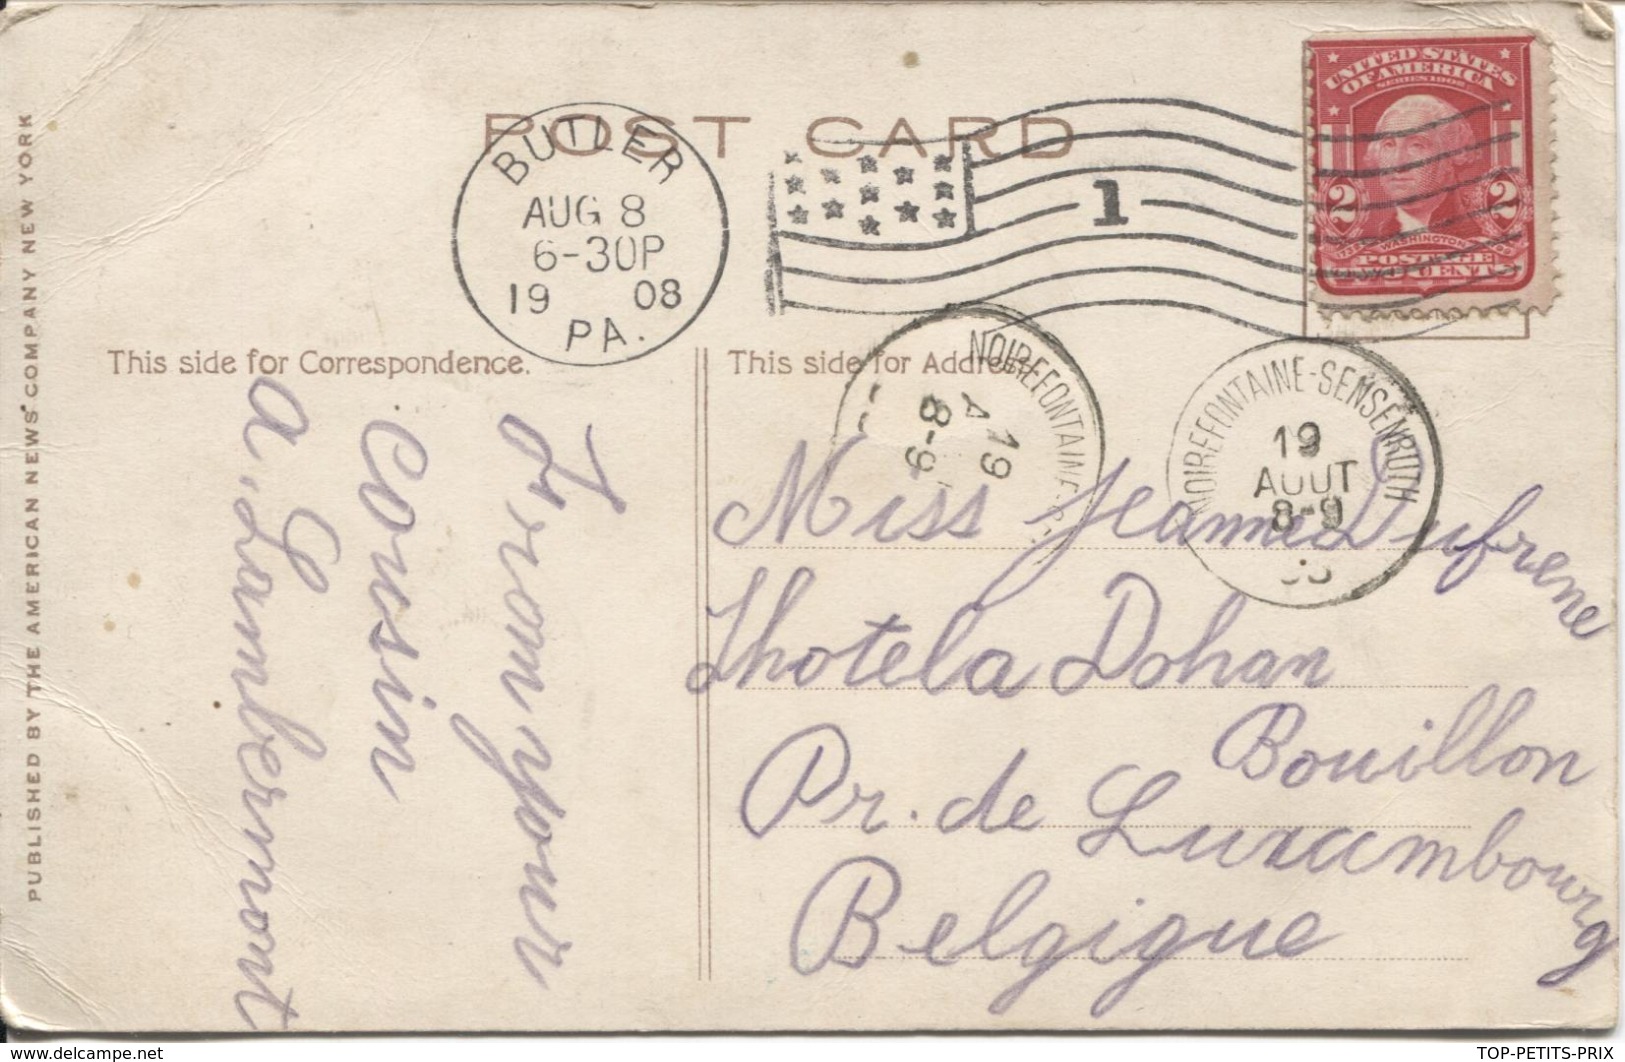 POST CARD
BUTLER
AUG 8
6-30P
19 08
PA.
1
UNITED STATES
OF AMERICA
SERIES 1902
2 2
1732 WASHINGTON 1799
POSTAGE
TWO CENTS
This side for Correspondence.
This side for Address.
NOIREFONTAINE-S
A 19
8-9
NOIREFONTAINE-SENSENRUTH
19
AOUT
8-9
From your
cousin
a. Lambermont
Miss Jeanne Dufrene
Lhotela Dohan
Bouillon
Pr. de Luxumbourg
Belgique
PUBLISHED BY THE AMERICAN NEWS COMPANY NEW YORK
www.delcampe.net
TOP-PETITS-PRIX